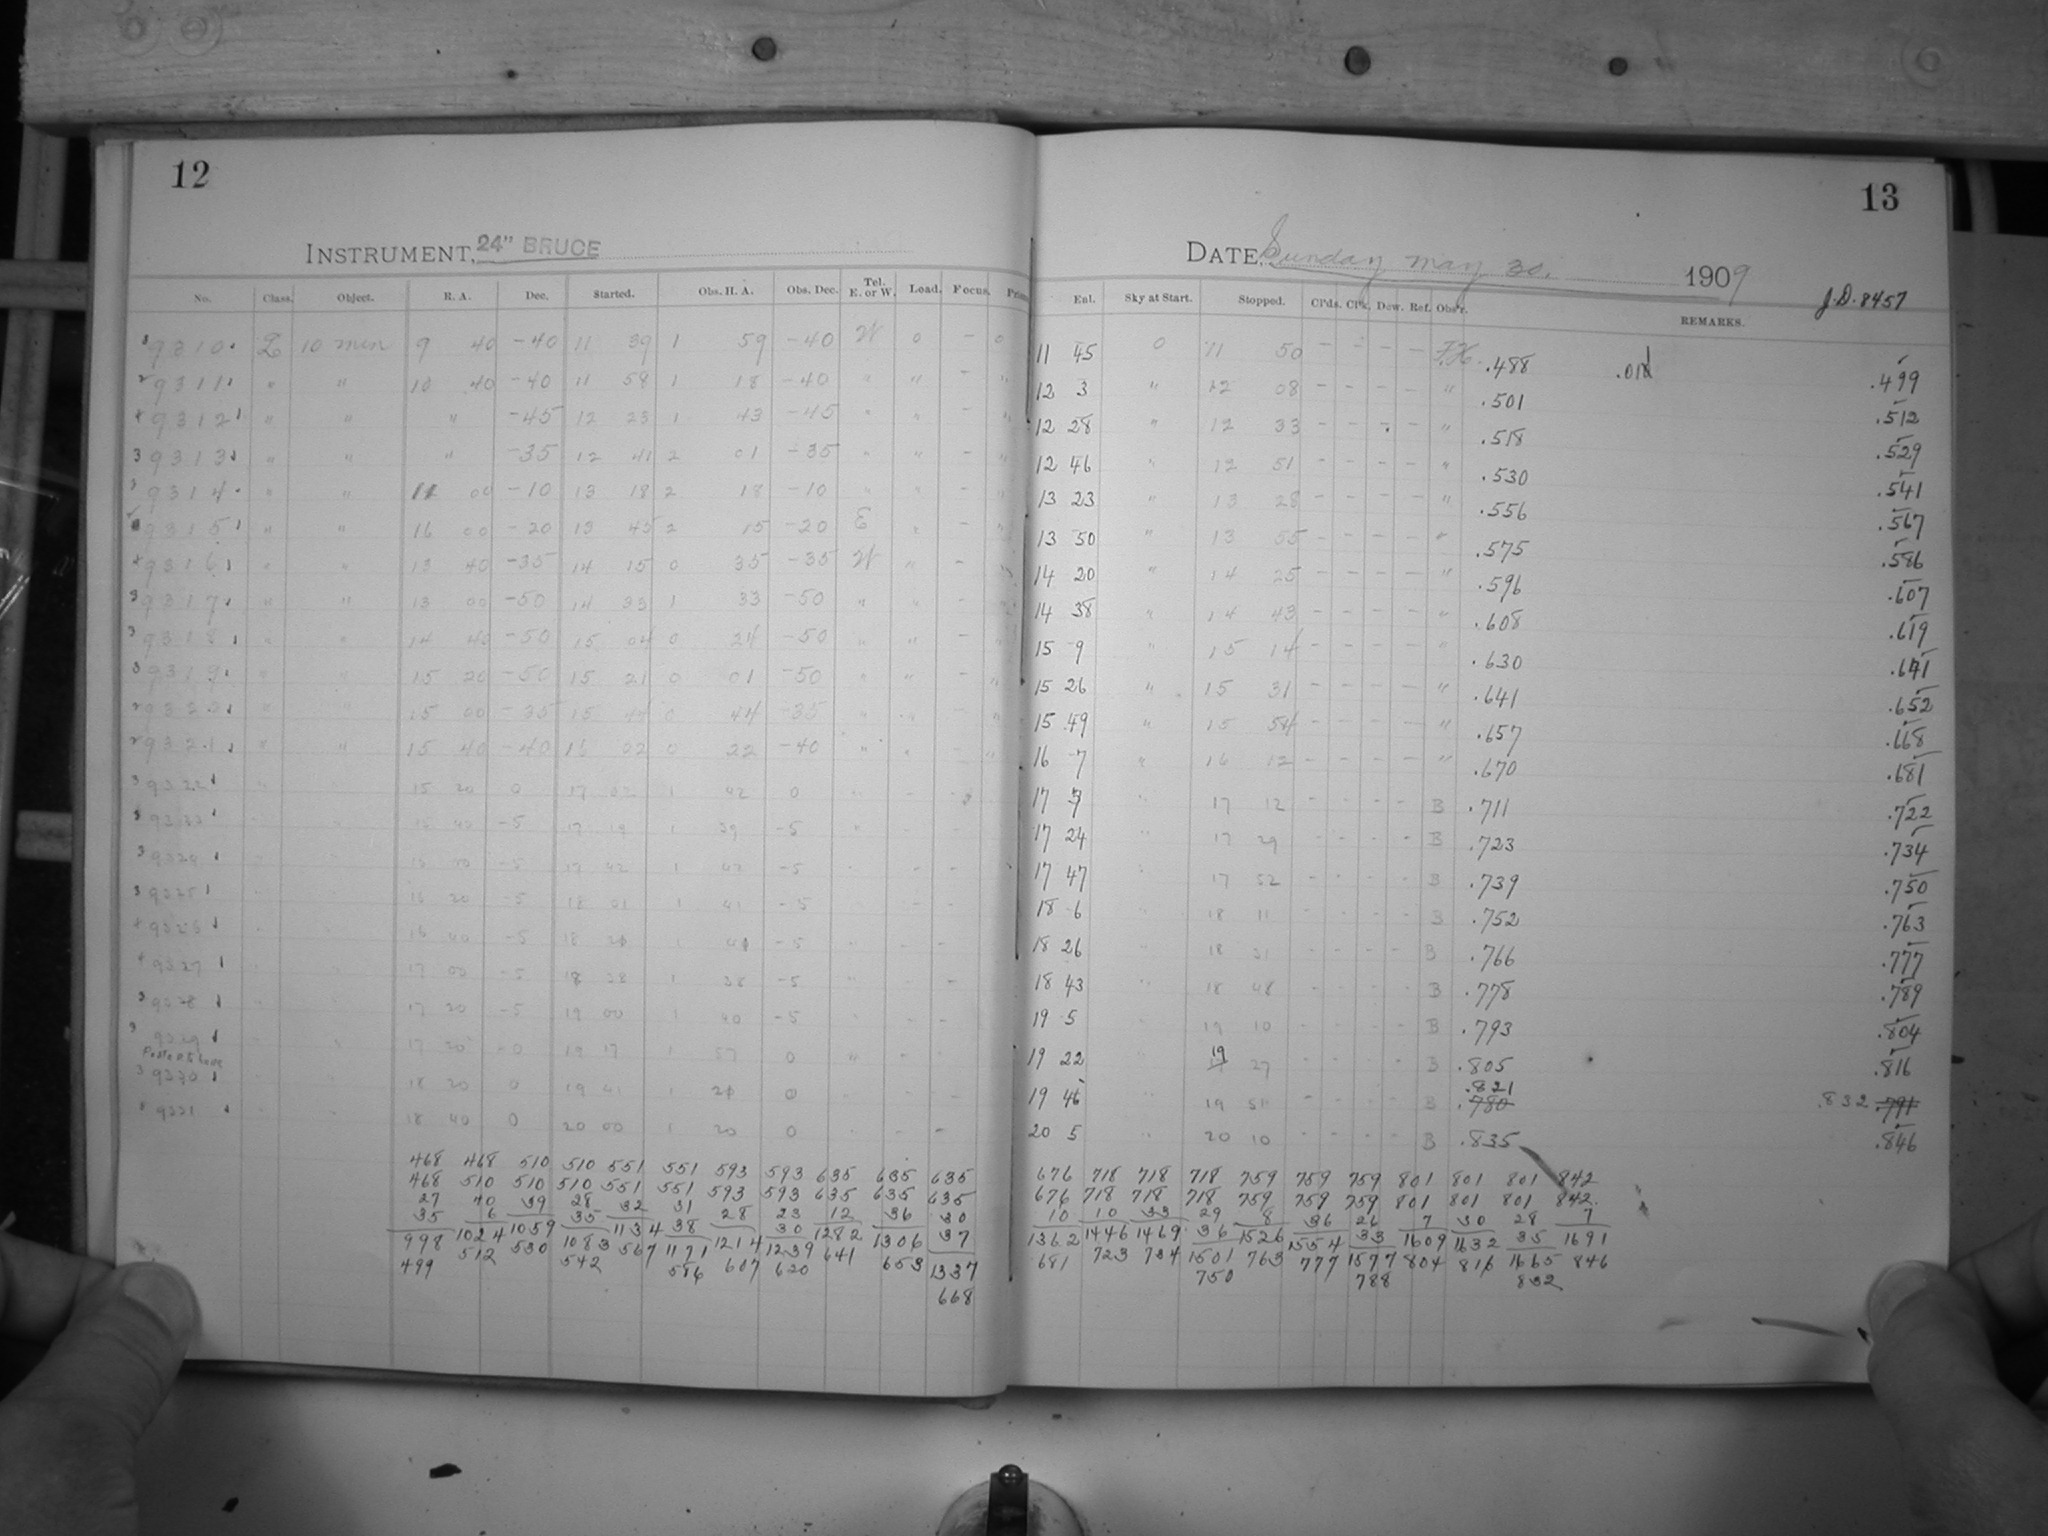 12
INSTRUMENT, 24" BRUCE
No. Class. Object. R. A. Dec. Started. Obs. H. A. Obs. Dec. Tel. E. or W. Load. Focus.
9310 L 10 min 9 40 -40 11 39 1 59 -40 W 0 - 0
9311 " " 10 40 -40 11 58 1 18 -40 " " - "
9312 " " " -45 12 23 1 43 -45 " " - "
9313 " " " -35 12 41 2 01 -35 " " - "
9314 " " 11 00 -10 13 18 2 18 -10 " " - "
9315 " " 16 00 -20 13 45 2 15 -20 E " - "
9316 " " 13 40 -35 14 15 0 35 -35 W " - "
9317 " " 13 00 -50 14 33 1 33 -50 " " - "
9318 " " 14 40 -50 15 04 0 24 -50 " " - "
9319 " " 15 20 -50 15 21 0 01 -50 " " - "
9320 " " 15 00 -35 15 44 0 44 -35 " " - "
9321 " " 15 40 -40 16 02 0 22 -40 " " - "
9322 " 15 20 0 17 02 1 42 0
9323 15 40 -5 17 19 1 39 -5
9324 -5 17 42 1 42 -5
9325 -5 18 01 1 41 -5
9326 16 40 -5 18 -5
9327 17 00 -5 18 38 1 38 -5
9328 17 20 -5 19 00 1 40 -5
9329 17 20 0 19 17 1 57 0
9330 18 20 0 19 41 1 0
9331 18 40 0 20 00 1 20 0
468 468 510 510 551 551 593 593 635 635 635
468 510 510 510 551 551 593 593 635 635 635
27 40 39 28 32 31 28 23 12 36 30
35 6 1059 35 1134 38 1214 30 1282 1306 37
998 1024 530 1083 567 1171 607 1239 641 653 1337
499 512 542 586 620 668
13
DATE, Sunday May 30. 1909
J.D. 8457
Enl. Sky at Start. Stopped. Cl'ds. Cl'k. Dew. Ref. Obs'r. REMARKS.
11 45 0 11 50 - - - - F.H. .488 .499
12 3 " 12 08 - - - - " .501 .512
12 28 " 12 33 - - - - " .518 .529
12 46 " 12 51 - - - - " .530 .541
13 23 " 13 28 - - - - " .556 .567
13 50 " 13 55 - - - - " .575 .586
14 20 " 14 25 - - - - " .596 .607
14 38 " 14 43 - - - - " .608 .619
15 9 " 15 14 - - - - " .630 .641
15 26 " 15 31 - - - - " .641 .652
15 49 " 15 54 - - - - " .657 .668
16 7 " 16 12 - - - - " .670 .681
17 7 " 17 12 - - - - B .711 .722
17 24 " 17 29 - - - - B .723 .734
17 47 " 17 52 - - - - B .739 .750
18 6 18 11 - - - - B .752 .763
18 26 18 31 - - - - B .766 .777
18 43 " 18 48 - - - - B .778 .789
19 5 19 10 - - - - B .793 .804
19 22 19 27 - - - - B .805 .816
.821
19 46 " 19 51 - - - - B .780 .832 .791
20 5 " 20 10 - - - - B .835 .846
676 718 718 718 759 759 759 801 801 801 842
676 718 718 718 759 759 759 801 801 801 842
10 10 33 29 8 36 26 7 30 28 7
1362 1446 1469 36 1526 1554 33 1609 1632 35 1691
681 723 734 1501 763 777 1577 804 816 1665 846
750 788 832